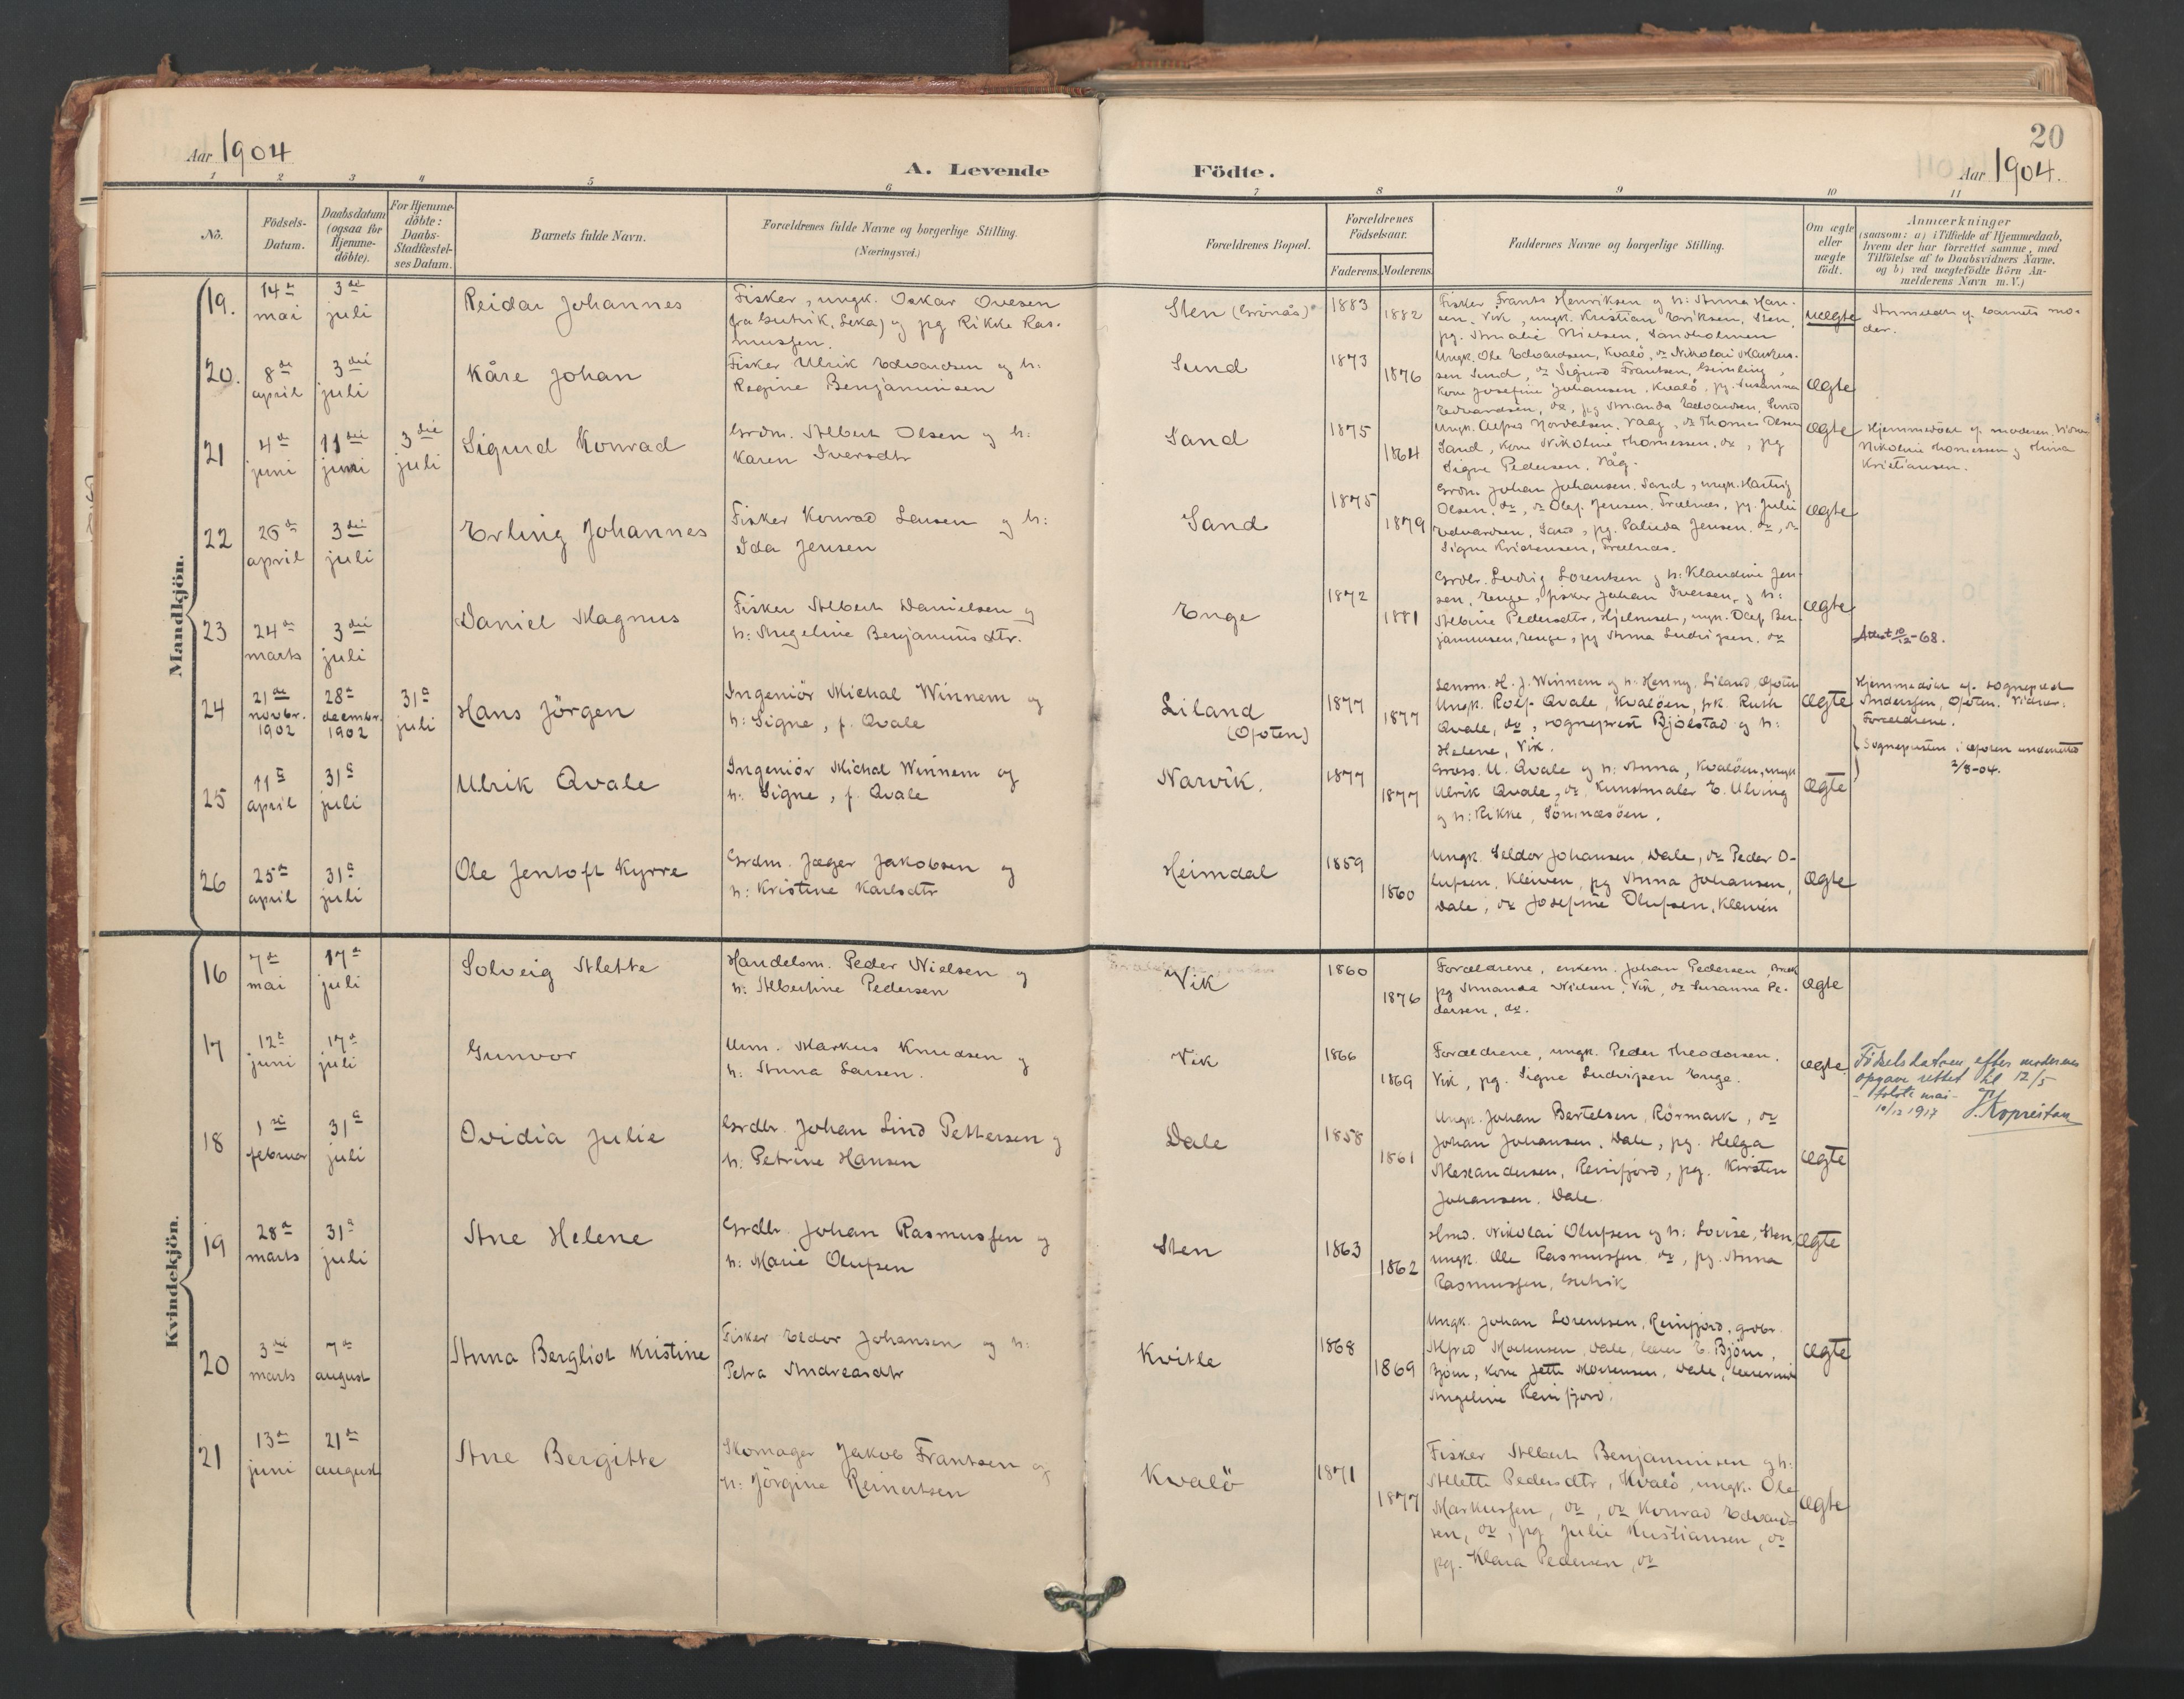 20
Aar 1904
A. Levende
Födte.
Aar 1904.
1 2 3 4 5 6 7 8 9 10 11
No.
Födsels-
Datum.
Daabsdatum
(ogsaa for
Hjemme-
döbte).
For Hjemme-
döbte:
Daabs-
Stadfæstel-
ses Datum.
Barnets fulde Navn.
Forældrenes fulde Navne og borgerlige Stilling.
(Næringsvei.)
Forældrenes Bopæl.
Forældrenes
Födselsaar.
Faderens. Moderens.
Faddernes Navne og borgerlige Stilling.
Om ægte
eller
uægte
födt.
Anmærkninger
(saasom: a) i Tilfælde af Hjemmedaab,
hvem der har forrettet samme, med
Tilföielse af to Daabsvidners Navne,
og b) ved uægtefödte Börn An-
melderens Navn m. V.)
Mandkjön.
19.
14de
mai
3die
juli
Reidar Johannes
Fisker, ungk. Oskar Ovesen
fra Gutvik, Leka) og pg Rikke Ras-
mussen.
Sten (Grönås)
1883
1882
Fisker Frants Henriksen og h: Anna Han-
sen, Vik, ungk. Kristian Eriksen, Sten,
pg. Amalie Nielsen, Sandholmen
uægte
Anmeldt af barnets mo-
der.
20.
8de
april
3die
juli
Kåre Johan
Fisker Ulrik Edvardsen og h:
Regine Benjaminsen
Sund
1873
1876
Ungk. Ole Edvardsen, Kvalö, do Nikolai Markus-
sen Sund, do Sigurd Frantsen, Gimling,
kone Josefine Johansen, Kvalö, pg. Susanna
Edvardsen, do, pg Amanda Edvardsen, Sund
ægte
21
4de
juni
11te
juni
3die
juli
Sigurd Konrad
Grdm. Albert Olsen og h:
Karen Iversdtr
Sand
1875
1864
Ungk. Alfred Nordvesen, Vaag, do Thomas Olsen
Sand, kone Nikoline Thomessen, do, pg
Signe Pedersen, Våg.
ægte
Hjemmedöbt af moderen. Vidner
Nikoline Thomessen og Anna
Kristiansen.
22
26de
april
3die
juli
Erling Johannes
Fisker Konrad Larsen og h:
Ida Jensen
Sand
1875
1879
Grdm. Johan Johansen, Sand, ungk. Hartvig
Olsen, do, do Olaf Jensen, Trælnes, pg. Julie
Edvardsen, Sand, pg. Palinda Jensen, do, do
Signe Kristensen, Trælnes.
ægte
23
24de
marts
3die
juli
Daniel Magnus
Fisker Albert Danielsen og
h: Angeline Benjaminsdtr.
Enge
1872
1881
Grdbr. Ludvig Lorentsen og h: Klaudine Jen-
sen, Enge, fisker Johan Iversen, og h:
Albine Pedersdtr, Hjelmset, ungk. Olaf Ben-
jaminsen, Enge, pg Anna Ludvigsen, do
ægte
Attest 10/12-68.
24
21de
novbr.
1902
28de
decembr.
1902
31te
juli
Hans Jörgen
Ingeniör Michal Winnem og
h: Signe, f. Qvale
Liland
(Ofoten)
1877
1877
Lensm. H. J. Winnem og h: Henny, Liland, Ofoten
Ungk. Rolf Qvale, Kvalöen, frk. Ruth
Qvale, do, sogneprest Bjölstad og h:
Helene, Vik.
ægte
Hjemmedöbt af sogneprest
Anderssen, Ofoten. Vidner:
Forældrene.
Sognepresten i Ofoten underrettet
2/8-04.
25
11te
april
31te
juli
Ulrik Qvale
Ingeniör Michal Winnem og
h: Signe, f. Qvale
Narvik.
1877
1877
Gross. U. Qvale og h: Anna, Kvalöen, ungk
Ulrik Qvale, do, Kunstmaler E. Ulving
og h: Rikke, Sömnesöen.
ægte
26
25de
april
31te
juli
Ole Jentoft Kyrre
Grdm. Jæger Jakobsen og
h: Kristine Karlsdtr
Heimdal
1859
1860
Ungk. Seldor Johansen, Dale, do Peder O-
lufsen, Kleiven, pg Anna Johansen,
Dale, do Josefine Olufsen, Kleiven
ægte
Kvindekjön.
16
7de
mai
17de
juli
Solveig Alette
Handelsm. Peder Nielsen og
h: Albertine Pedersen
Vik
1860
1876
Forældrene, enkem. Johan Pedersen,
pg Amanda Nielsen, Vik, do Susanna Pe-
dersen, do.
ægte
17
12te
juni
17de
juli
Gunvor
Um. Markus Knudsen og
h: Anna Larsen.
Vik
1866
1869
Forældrene, ungk. Peder Theodorsen.
Vik, pg. Signe Ludvigsen Enge.
ægte
Födselsdatoen efter moderens
opgave rettet til 12/5
- tolvte mai -
10/12 1917 J. Kopreitan
18
1ste
februar
31te
juli
Ovidia Julie
Grdbr. Johan Lind Pettersen og
h: Petrine Hansen
Dale
1858
1861
Ungk. Johan Bertelsen, Rörmark, do
Johan Johansen, Dale, pg. Helga
Alexandersen, Reinfjord, pg. Kirsten
Johansen, Dale.
ægte
19
28de
marts
31te
juli
Ane Helene
Grdbr. Johan Rasmussen og
h: Marie Olufsen
Sten
1863
1862
Hmd. Nikolai Olufsen og h: Lovise, Sten,
ungk. Ole Rasmussen, do, pg. Anna
Rasmussen, Gutvik
ægte
20
3die
marts
7de
august
Anna Bergliot Kristine
Fisker Eldor Johansen og h:
Petra Andreasdtr
Kvitle
1868
1869
Ungk. Johan Lorentsen, Reinfjord, grdbr.
Alfred Mortensen, Dale, lærer E. Björn,
Björn, kone Jette Mortensen, Dale, lærerinde
Angeline Reinfjord.
ægte
21
13de
juni
21de
august
Ane Bergitte
Skomager Jakob Frantsen og
h: Jörgine Reinertsen
Kvalö
1871
1877
Fisker Albert Benjaminsen og h:
Alette Pedersdtr, Kvalö, ungk. Ole
Markussen, do, do Konrad Edvard-
sen, do, pg Julie Kristiansen, do
pg. Klara Pedersen, do
ægte